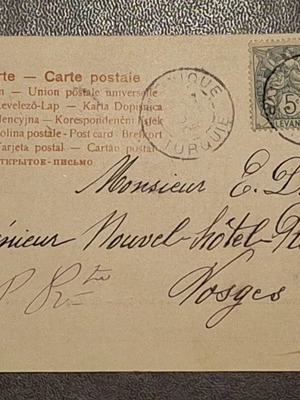 rte — Carte postale
n - Union postale universelle
Levelező-Lap - Karta Dopisnica
dencyjna - Korespondenční lístek
olina postale - Post card - Brefkort
Tarjeta postal - Cartão postal
ОТКРЫТОЕ-ПИСЬМО
NIQUE
TURQUIE
5
LEVAN
Monsieur E. D
énieur Nouvel-hôtel-
Vosges